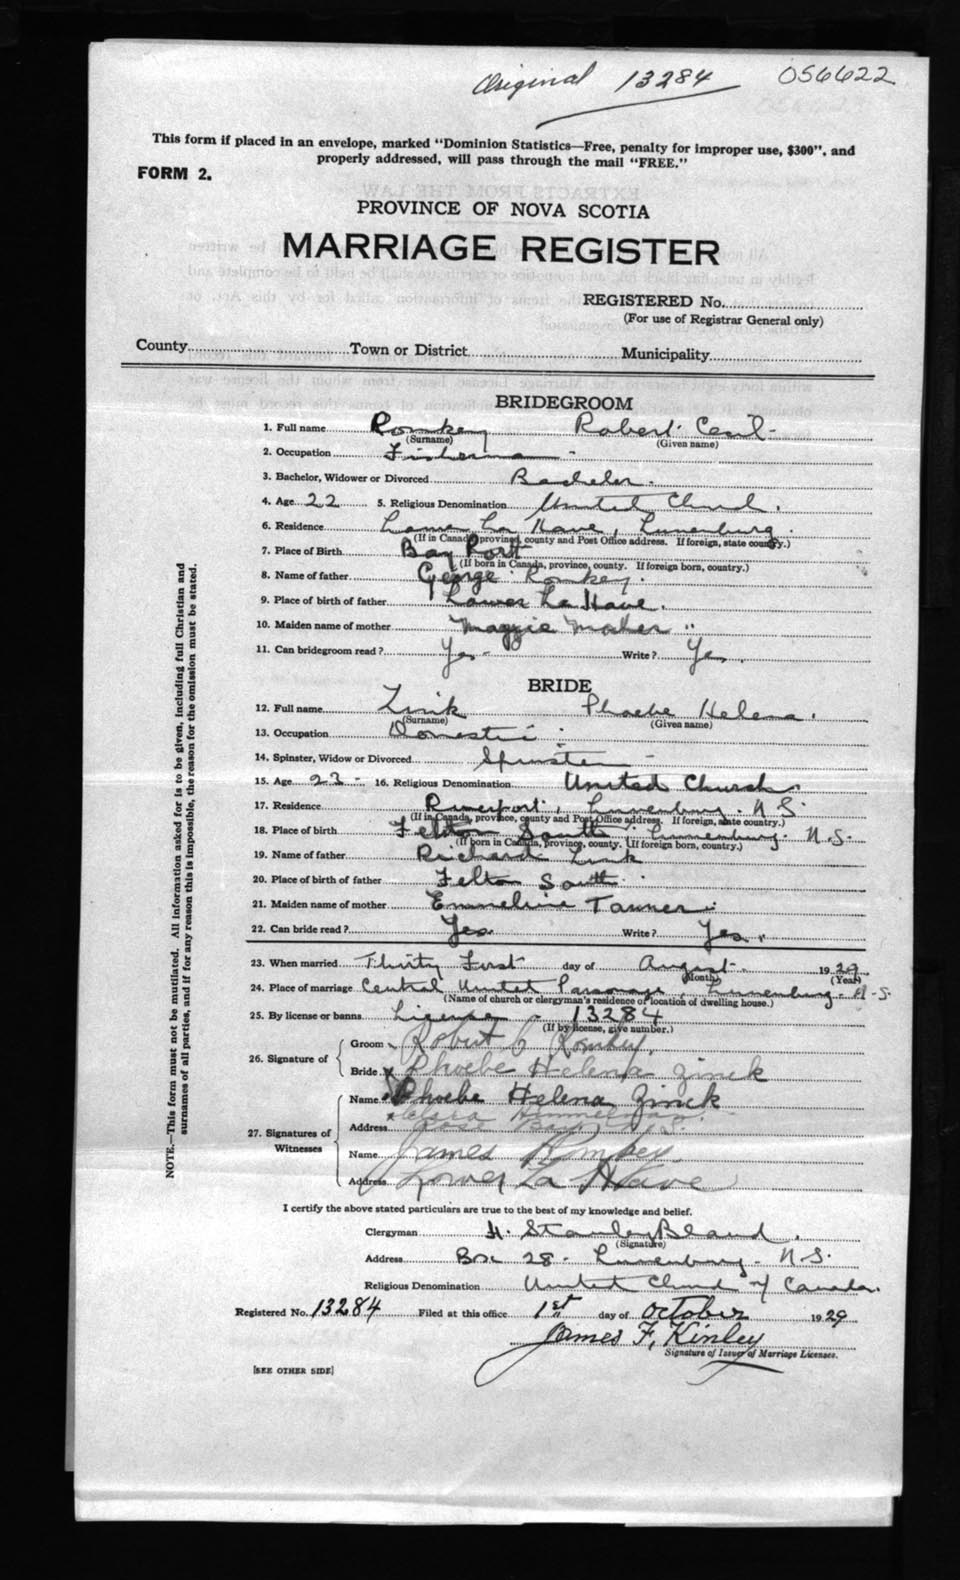 Original 13284 056622
This form if placed in an envelope, marked "Dominion Statistics—Free, penalty for improper use, $300", and
properly addressed, will pass through the mail "FREE."
FORM 2.
PROVINCE OF NOVA SCOTIA
MARRIAGE REGISTER
REGISTERED No.
(For use of Registrar General only)
County Town or District Municipality
BRIDEGROOM
1. Full name Romkey Robert Cecil
(Surname) (Given name)
2. Occupation Fisherman
3. Bachelor, Widower or Divorced Bachelor.
4. Age 22 5. Religious Denomination United Church.
6. Residence Lower La Have, Lunenburg.
(If in Canada, province, county and Post Office address. If foreign, state county.)
7. Place of Birth Bay Port
(If born in Canada, province, county. If foreign born, country.)
8. Name of father George Romkey.
9. Place of birth of father Lower La Have.
10. Maiden name of mother Maggie Mosher
11. Can bridegroom read? Yes Write? Yes.
BRIDE
12. Full name Zink Phoebe Helena.
(Surname) (Given name)
13. Occupation Domestic
14. Spinster, Widow or Divorced Spinster
15. Age 23 16. Religious Denomination United Church
17. Residence Riverport, Lunenburg. N.S.
(If in Canada, province, county and Post Office address. If foreign, state country.)
18. Place of birth Felton South, Lunenburg. N.S.
(If born in Canada, province, county. If foreign born, country.)
19. Name of father Richard Zink
20. Place of birth of father Felton South
21. Maiden name of mother Emmeline Tanner
22. Can bride read? Yes. Write? Yes.
23. When married Thirty First day of August 1929
(Month) (Year)
24. Place of marriage Central United Parsonage, Lunenburg N.S.
(Name of church or clergyman's residence or location of dwelling house.)
25. By license or banns License 13284
(If by license, give number.)
26. Signature of
Groom Robert C Romkey.
Bride Phoebe Helena Zinck
27. Signatures of
Witnesses
Name Phoebe Helena Zinck
Address Rose Bay N.S.
Name James Romkey
Address Lower La Have
I certify the above stated particulars are true to the best of my knowledge and belief.
Clergyman H. Stanley Bland.
(Signature)
Address Box 28. Lunenburg. N.S.
Religious Denomination United Church of Canada.
Registered No. 13284 Filed at this office 1st day of October 1929
James F. Kinley
Signature of Issuer of Marriage Licenses.
[SEE OTHER SIDE]
NOTE.—This form must not be mutilated. All information asked for is to be given, including full Christian and
surnames of all parties, and if for any reason this is impossible, the reason for the omission must be stated.